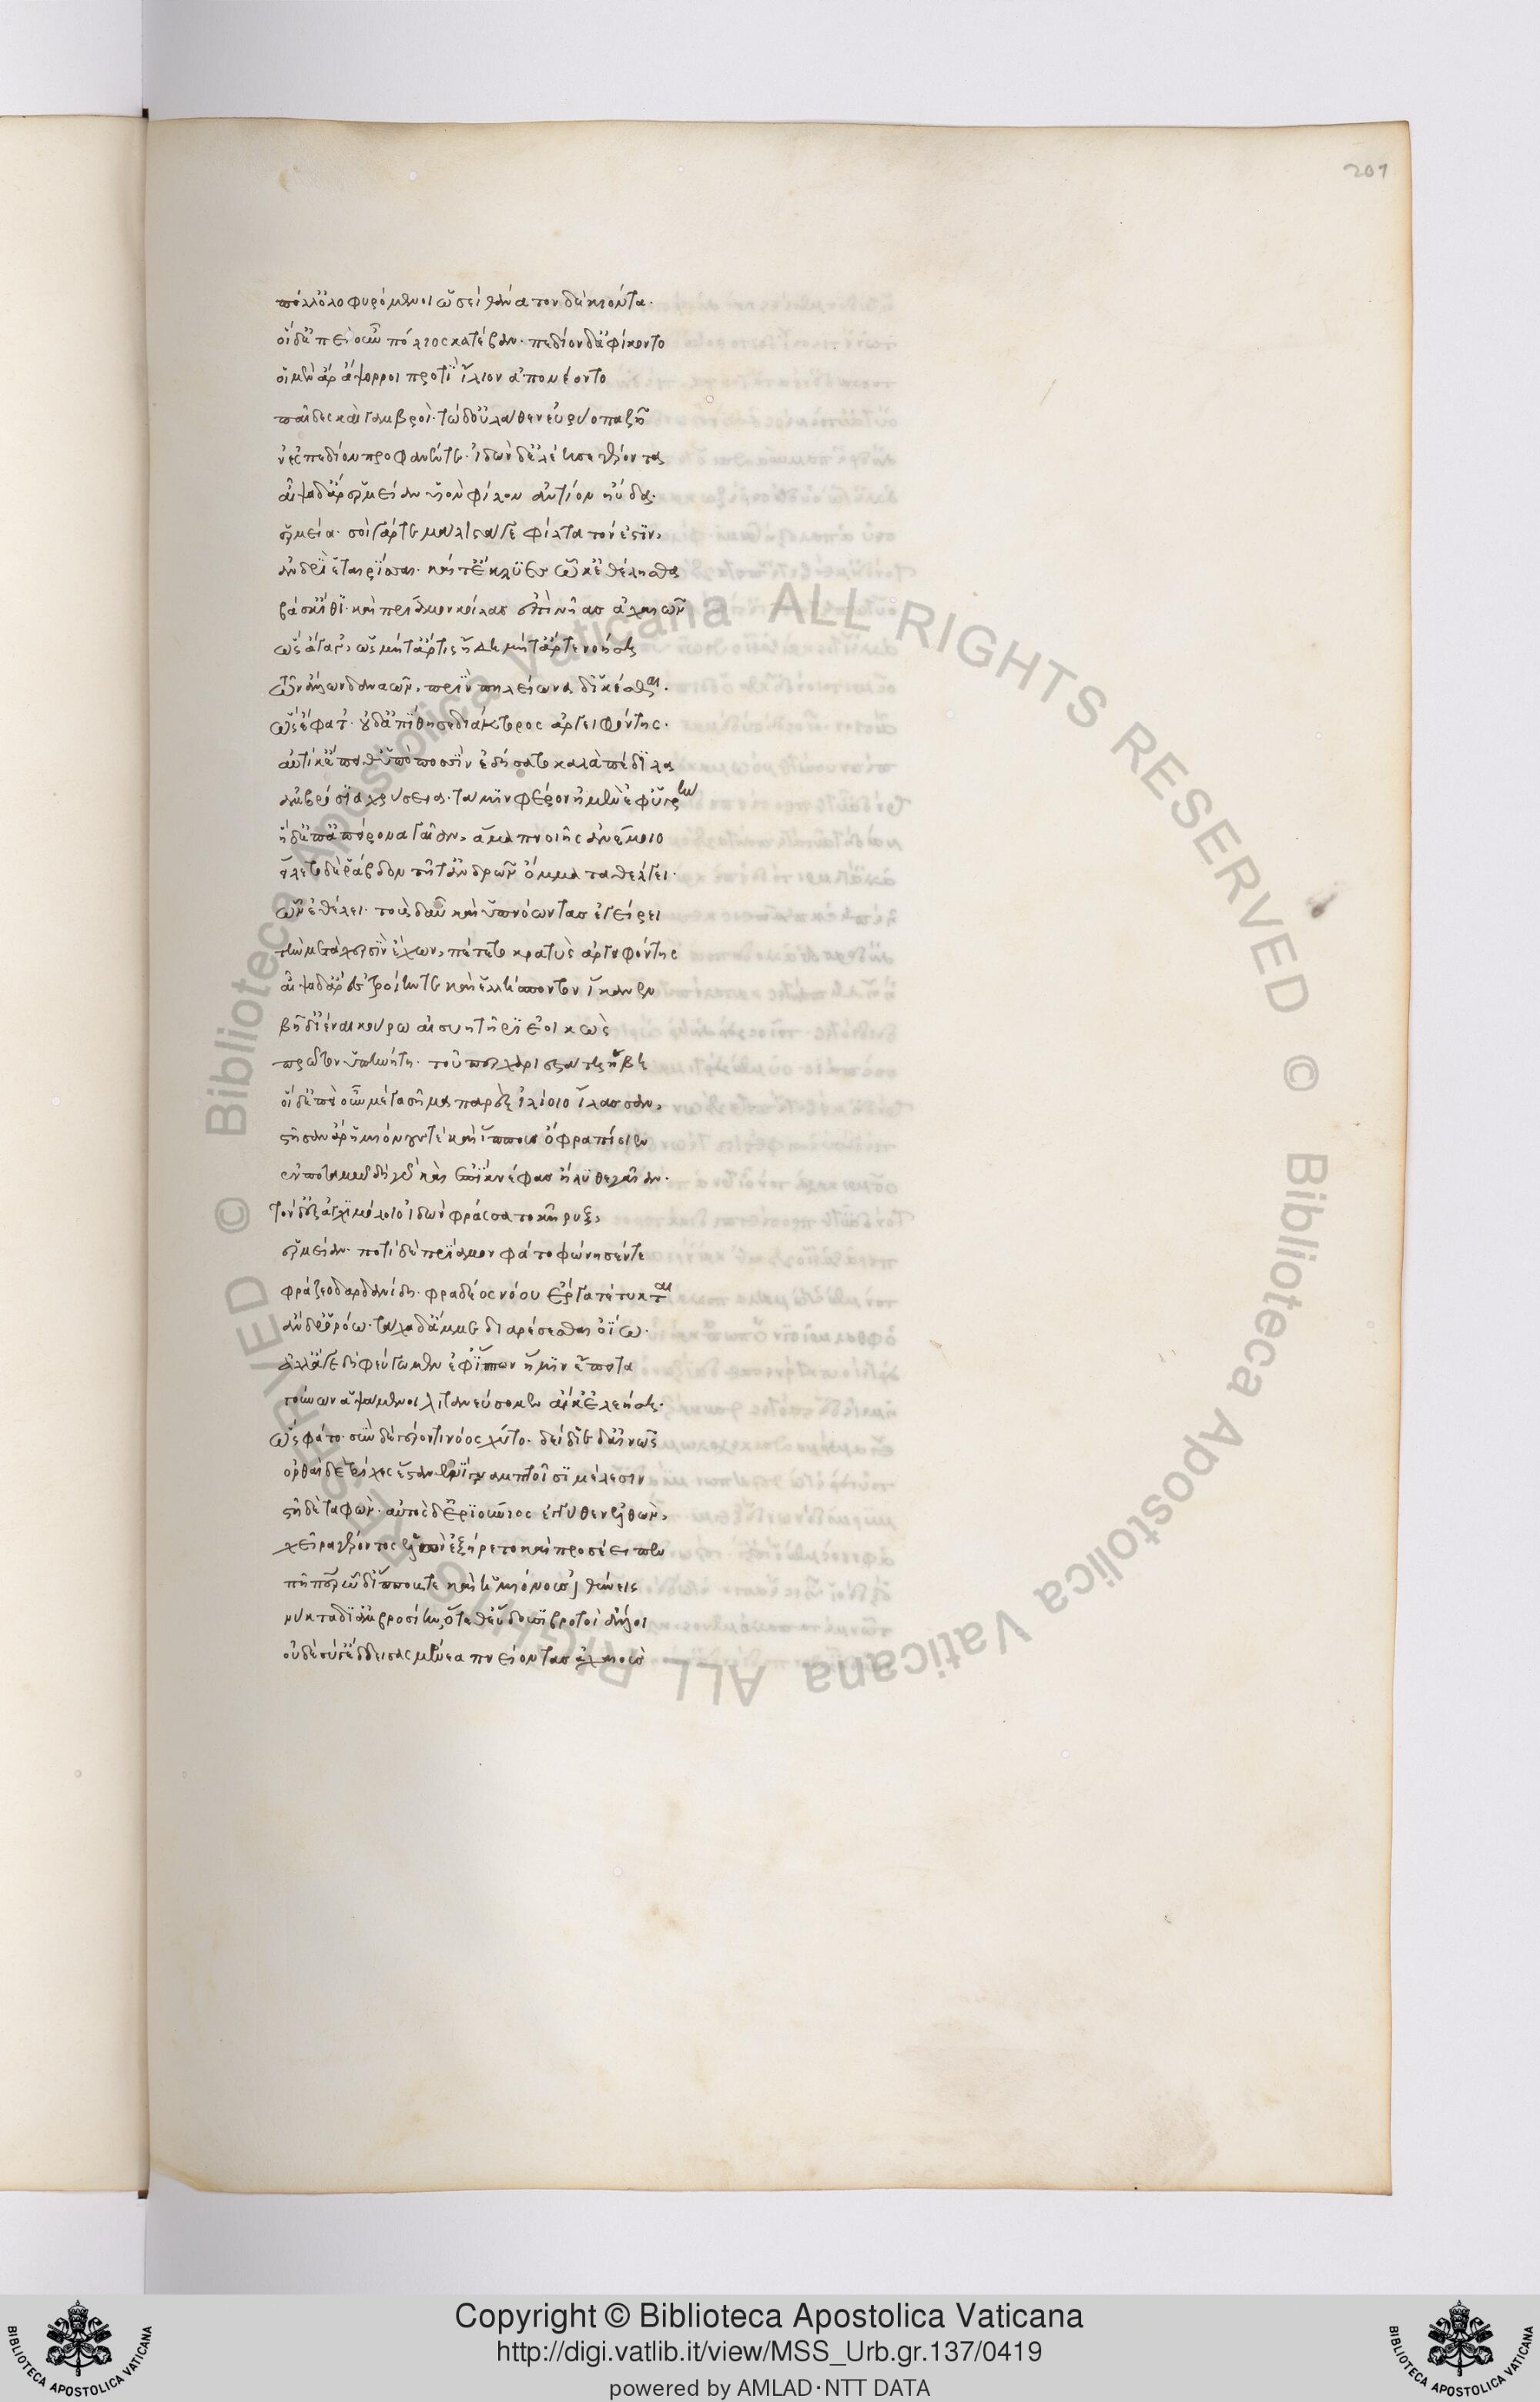 201
πόλλ' ὀλοφυρόμενοι ὡσεὶ θάνατον δὲ κιόντα·
οἱ δ' ἐπεὶ οὖν πόλιος κατέβαν· πεδίον δ' ἀφίκοντο
οἱ μὲν ἄρ' ἄψορροι προτὶ ἴλιον ἀπονέοντο
παῖδες καὶ γαμβροὶ· τὼ δ' οὐ λάθεν εὐρύοπα ζῆν
ἐς πεδίον προφανέντε· ἰδὼν δ' ἐλέησε γέροντα
αἶψα δ' ἄρ' ἑρμείαν υἱὸν φίλον ἀντίον ηὔδα·
ἑρμεία· σοὶ γάρ τε μάλιστά γε φίλτατόν ἐστιν,
ἀνδρὶ ἑταιρίσσαι· καί τ' ἔκλυες ᾧ κ' ἐθέλησθα
βάσκ' ἴθι· καὶ πρίαμον κοίλας ἐπὶ νῆας ἀχαιῶν
ὣς ἄγαγ', ὡς μήτ' ἄρ τις ἴδῃ μήτ' ἄρ τε νοήσῃ
τῶν ἄλλων δαναῶν, πρὶν πηλείωνα δ' ἱκέσθαι·
ὣς ἔφατ'· οὐδ' ἀπίθησε διάκτορος ἀργειφόντης·
αὐτίκ' ἔπειθ' ὑπὸ ποσσὶν ἐδήσατο καλὰ πέδιλα
ἀμβρόσια χρύσεια· τά μιν φέρον ἠμὲν ἐφ' ὑγρὴν
ἠδ' ἐπ' ἀπείρονα γαῖαν, ἅμα πνοιῇς ἀνέμοιο
εἵλετο δὲ ῥάβδον τῇ τ' ἀνδρῶν ὄμματα θέλγει·
ὧν ἐθέλει· τοὺς δ' αὖ καὶ ὑπνώοντας ἐγείρει
τὴν μετὰ χερσὶν ἔχων, πέτετο κρατὺς ἀργειφόντης
αἶψα δ' ἄρ' ἐς τροίην τε καὶ ἑλλήσποντον ἵκανεν
βῆ δ' ἰέναι κούρῳ αἰσυητῆρι ἐοικὼς
πρῶτον ὑπηνήτῃ· τοῦ περ χαριεστάτη ἥβη
οἱ δ' ἐπεὶ οὖν μέγα σῆμα παρὲξ ἰλίοιο ἔλασσαν,
στῆσαν ἄρ' ἡμιόνους τε καὶ ἵππους ὄφρα πίοιεν
ἐν ποταμῷ δὴ γὰρ καὶ ἐπὶ κνέφας ἤλυθε γαῖαν·
τὸν δ' ἐξ ἀγχιμόλοιο ἰδὼν φράσσατο κῆρυξ,
ἑρμείαν· ποτὶ δὲ πρίαμον φάτο φώνησέν τε
φράζεο δαρδανίδη· φραδέος νόου ἔργα τέτυκται
ἄνδρ' ὁρόω· τάχα δ' ἄμμε διαρραίσεσθαι ὀΐω·
ἀλλ' ἄγε δὴ φεύγωμεν ἐφ' ἵππων ἤ μιν ἔπειτα
γούνων ἁψάμενοι λιτανεύσομεν αἴ κ' ἐλεήσῃ·
ὣς φάτο· σὺν δὲ γέροντι νόος χύτο· δείδιε δ' αἰνῶς
ὀρθαὶ δὲ τρίχες ἔσταν ἐνὶ γναμπτοῖσι μέλεσσιν
στῆ δὲ ταφών· αὐτὸς δ' ἐριούνιος ἐγγύθεν ἐλθὼν,
χεῖρα γέροντος ἑλὼν ἐξήρετο καὶ προσέειπεν
πῇ πάτερ ὧδ' ἵππους τε καὶ ἡμιόνους ἰθύνεις
νύκτα δι' ἀμβροσίην, ὅτε θ' εὕδουσι βροτοὶ ἄλλοι
οὐδὲ σύ γ' ἔδδεισας μένεα πνείοντας ἀχαιοὺς
Copyright © Biblioteca Apostolica Vaticana
http://digi.vatlib.it/view/MSS_Urb.gr.137/0419
powered by AMLAD·NTT DATA